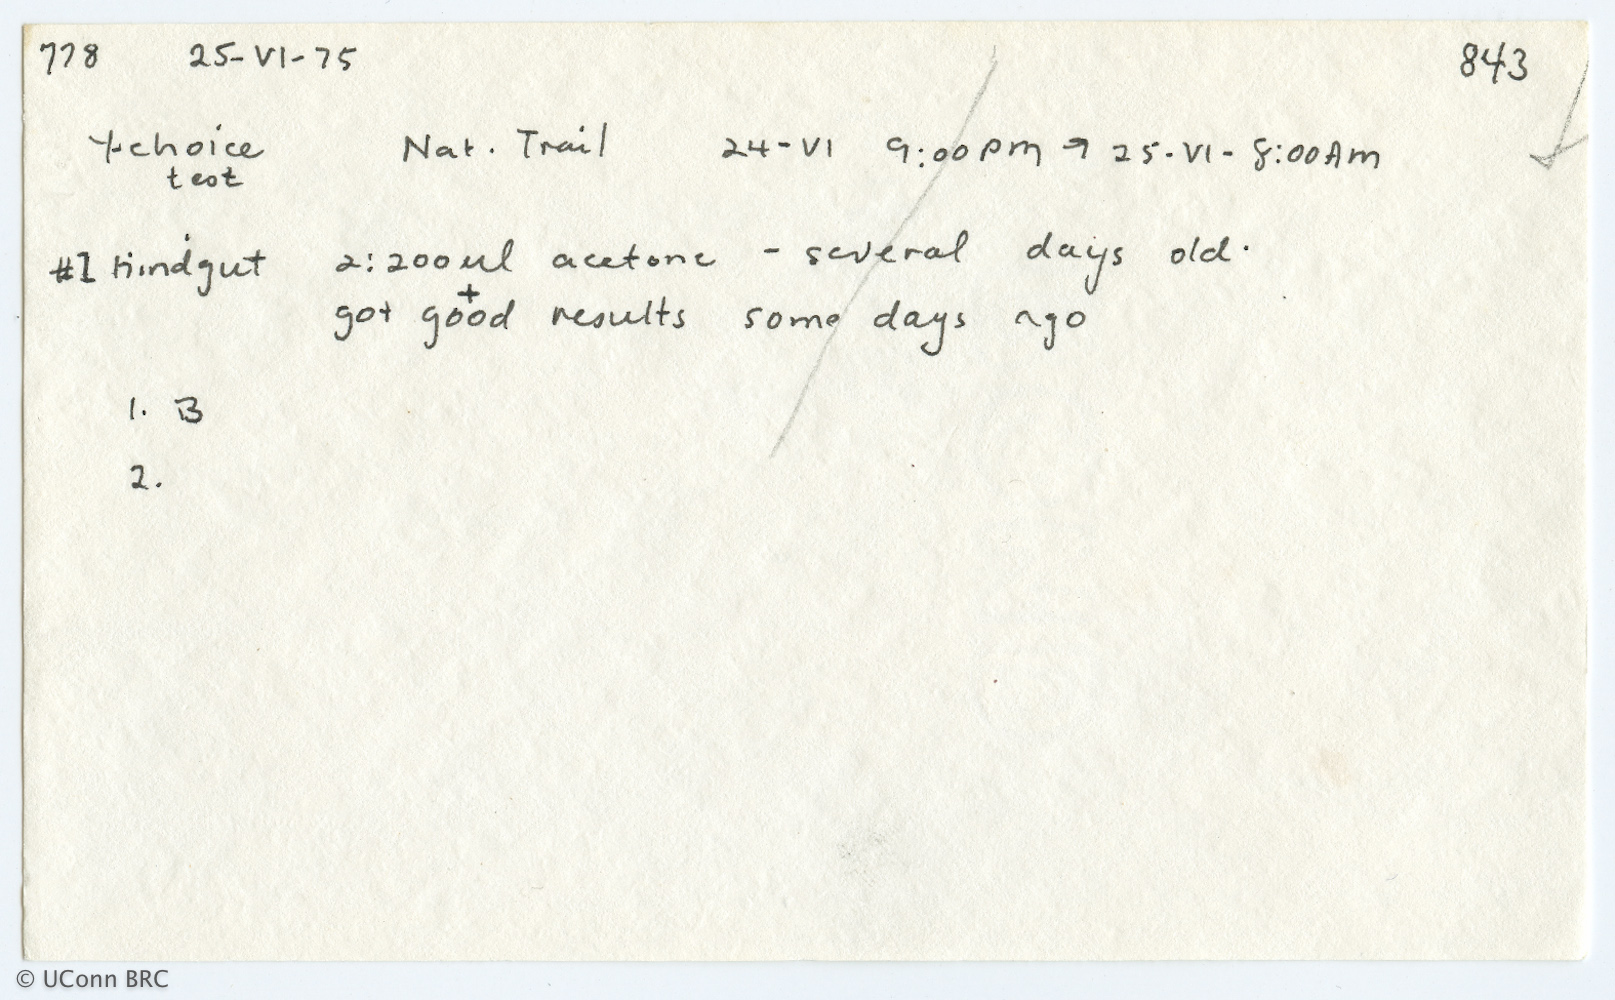 778 25-VI-75 843
Y-choice Nat. Trail 24-VI 9:00PM → 25-VI-8:00AM
test
#1 Hindgut 2:200ul acetone - several days old.
+
got good results some days ago
1. B
2.
© UConn BRC